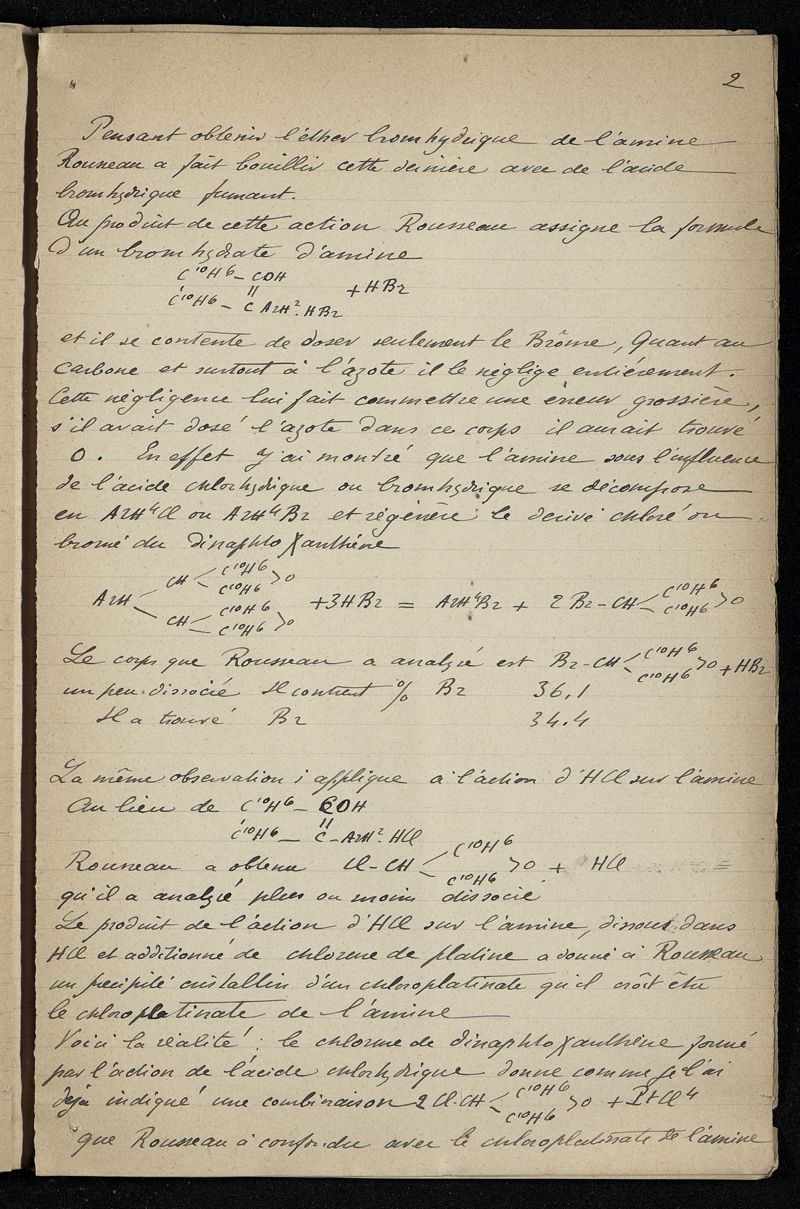 2
Pensant obtenir l'éther bromhydrique de l'amine
Rousseau a fait bouillir cette dernière avec de l'acide
bromhydrique fumant.
Au produit de cette action Rousseau assigne la formule
d'un bromhydrate d'amine
C¹⁰H⁶ – COH
C¹⁰H⁶ – C AzH². HBr + HBr
et il se contente de doser seulement le Brôme, Quant au
carbone et surtout à l'azote il le néglige entiérement.
Cette négligence lui fait commettre une érreur grossière,
s'il avait dosé l'azote dans ce corps il aurait trouvé
0. En effet j'ai montré que l'amine sous l'influence
de l'acide chlorhydrique ou bromhydrique se décompose
en AzH⁴Cl ou AzH⁴Br et régénère le derivé chloré ou
bromé du dinaphtoXanthène
AzH < CH < C¹⁰H⁶ C¹⁰H⁶ > O CH < C¹⁰H⁶ C¹⁰H⁶ > O + 3HBr = AzH⁴Br + 2 Br – CH < C¹⁰H⁶ C¹⁰H⁶ > O
Le corps que Rousseau a analysé est Br – CH < C¹⁰H⁶ C¹⁰H⁶ > O + HBr
un peu dissocié Il contient % Br 36,1
Il a trouvé Br 34.4
La même observation s'applique à l'action d'HCl sur l'amine
Au lieu de C¹⁰H⁶ – COH
C¹⁰H⁶ – C – AzH². HCl
Rousseau a obtenu Cl – CH < C¹⁰H⁶ C¹⁰H⁶ > O + HCl =
qu'il a analysé plus ou moins dissocié
Le produit de l'action d'HCl sur l'amine, dissout dans
HCl et additionné de chlorure de platine a donné à Rousseau
un précipité cristallin d'un chloroplatinate qu'il croit être
le chloroplatinate de l'amine
Voici la réalité : le chlorure de dinaphtoXanthène formé
par l'action de l'acide chlorhydrique donne comme je l'ai
déja indiqué une combinaison 2 Cl.CH < C¹⁰H⁶ C¹⁰H⁶ > O + PtCl⁴
que Rousseau a confondu avec le chloroplatinate de l'amine